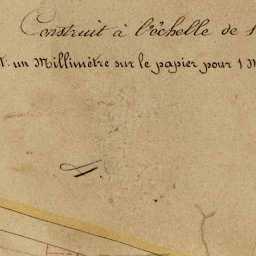 Construit à l'échelle de 1
un Millimètre sur le papier pour 1 M